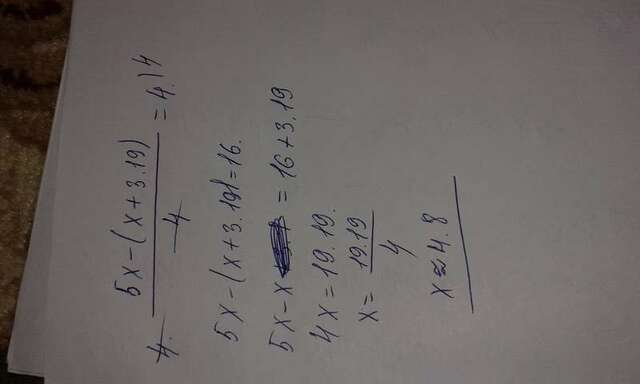 4. (5x-(x+3.19))/4 = 4.)4
5x-(x+3.19)=16.
5x-x = 16+3.19
4x=19.19.
x= 19.19/4
x≈4.8